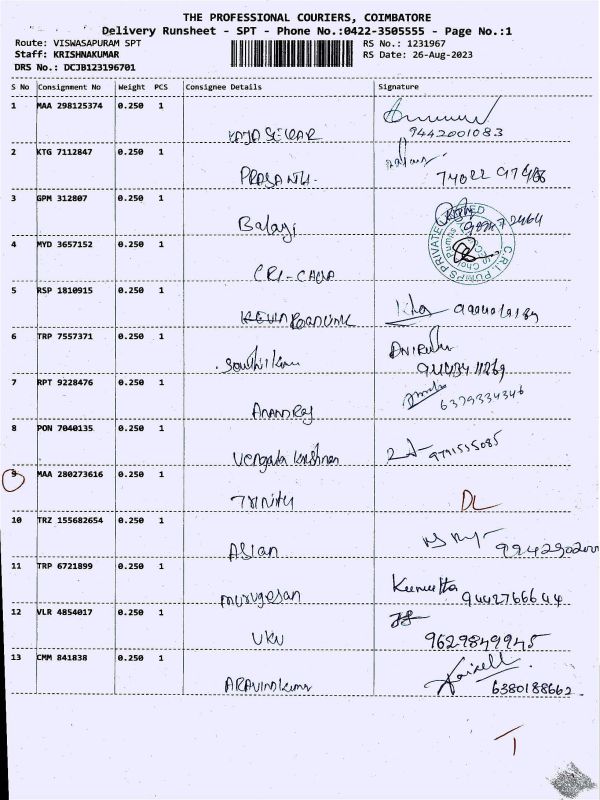 THE PROFESSIONAL COURIERS, COIMBATORE
Delivery Runsheet - SPT - Phone No.:0422-3505555 - Page No.:1
Route: VISWASAPURAM SPT RS No.: 1231967
Staff: KRISHNAKUMAR RS Date: 26-Aug-2023
DRS No.: DCJB123196701
S No Consignment No Weight PCS Consignee Details Signature
1 MAA 298125374 0.250 1
9442001083
2 KTG 7112847 0.250 1
PRASANTH.
3 GPM 312807 0.250 1
Balaji
4 MYD 3657152 0.250 1
C.R.I. PUMPS PRIVATE LIMITED
5 RSP 1810915 0.250 1
6 TRP 7557371 0.250 1
7 RPT 9228476 0.250 1
Anand Raj 6379334346
8 PON 7040135 0.250 1
Vengata Krishnan 9791555085
9 MAA 280273616 0.250 1
Trinity DL
10 TRZ 155682654 0.250 1
Asian
11 TRP 6721899 0.250 1
Murugesan 9442766644
12 VLR 4854017 0.250 1
VKV 9629849945
13 CMM 841838 0.250 1
ARAVIND Kumar 6380188662